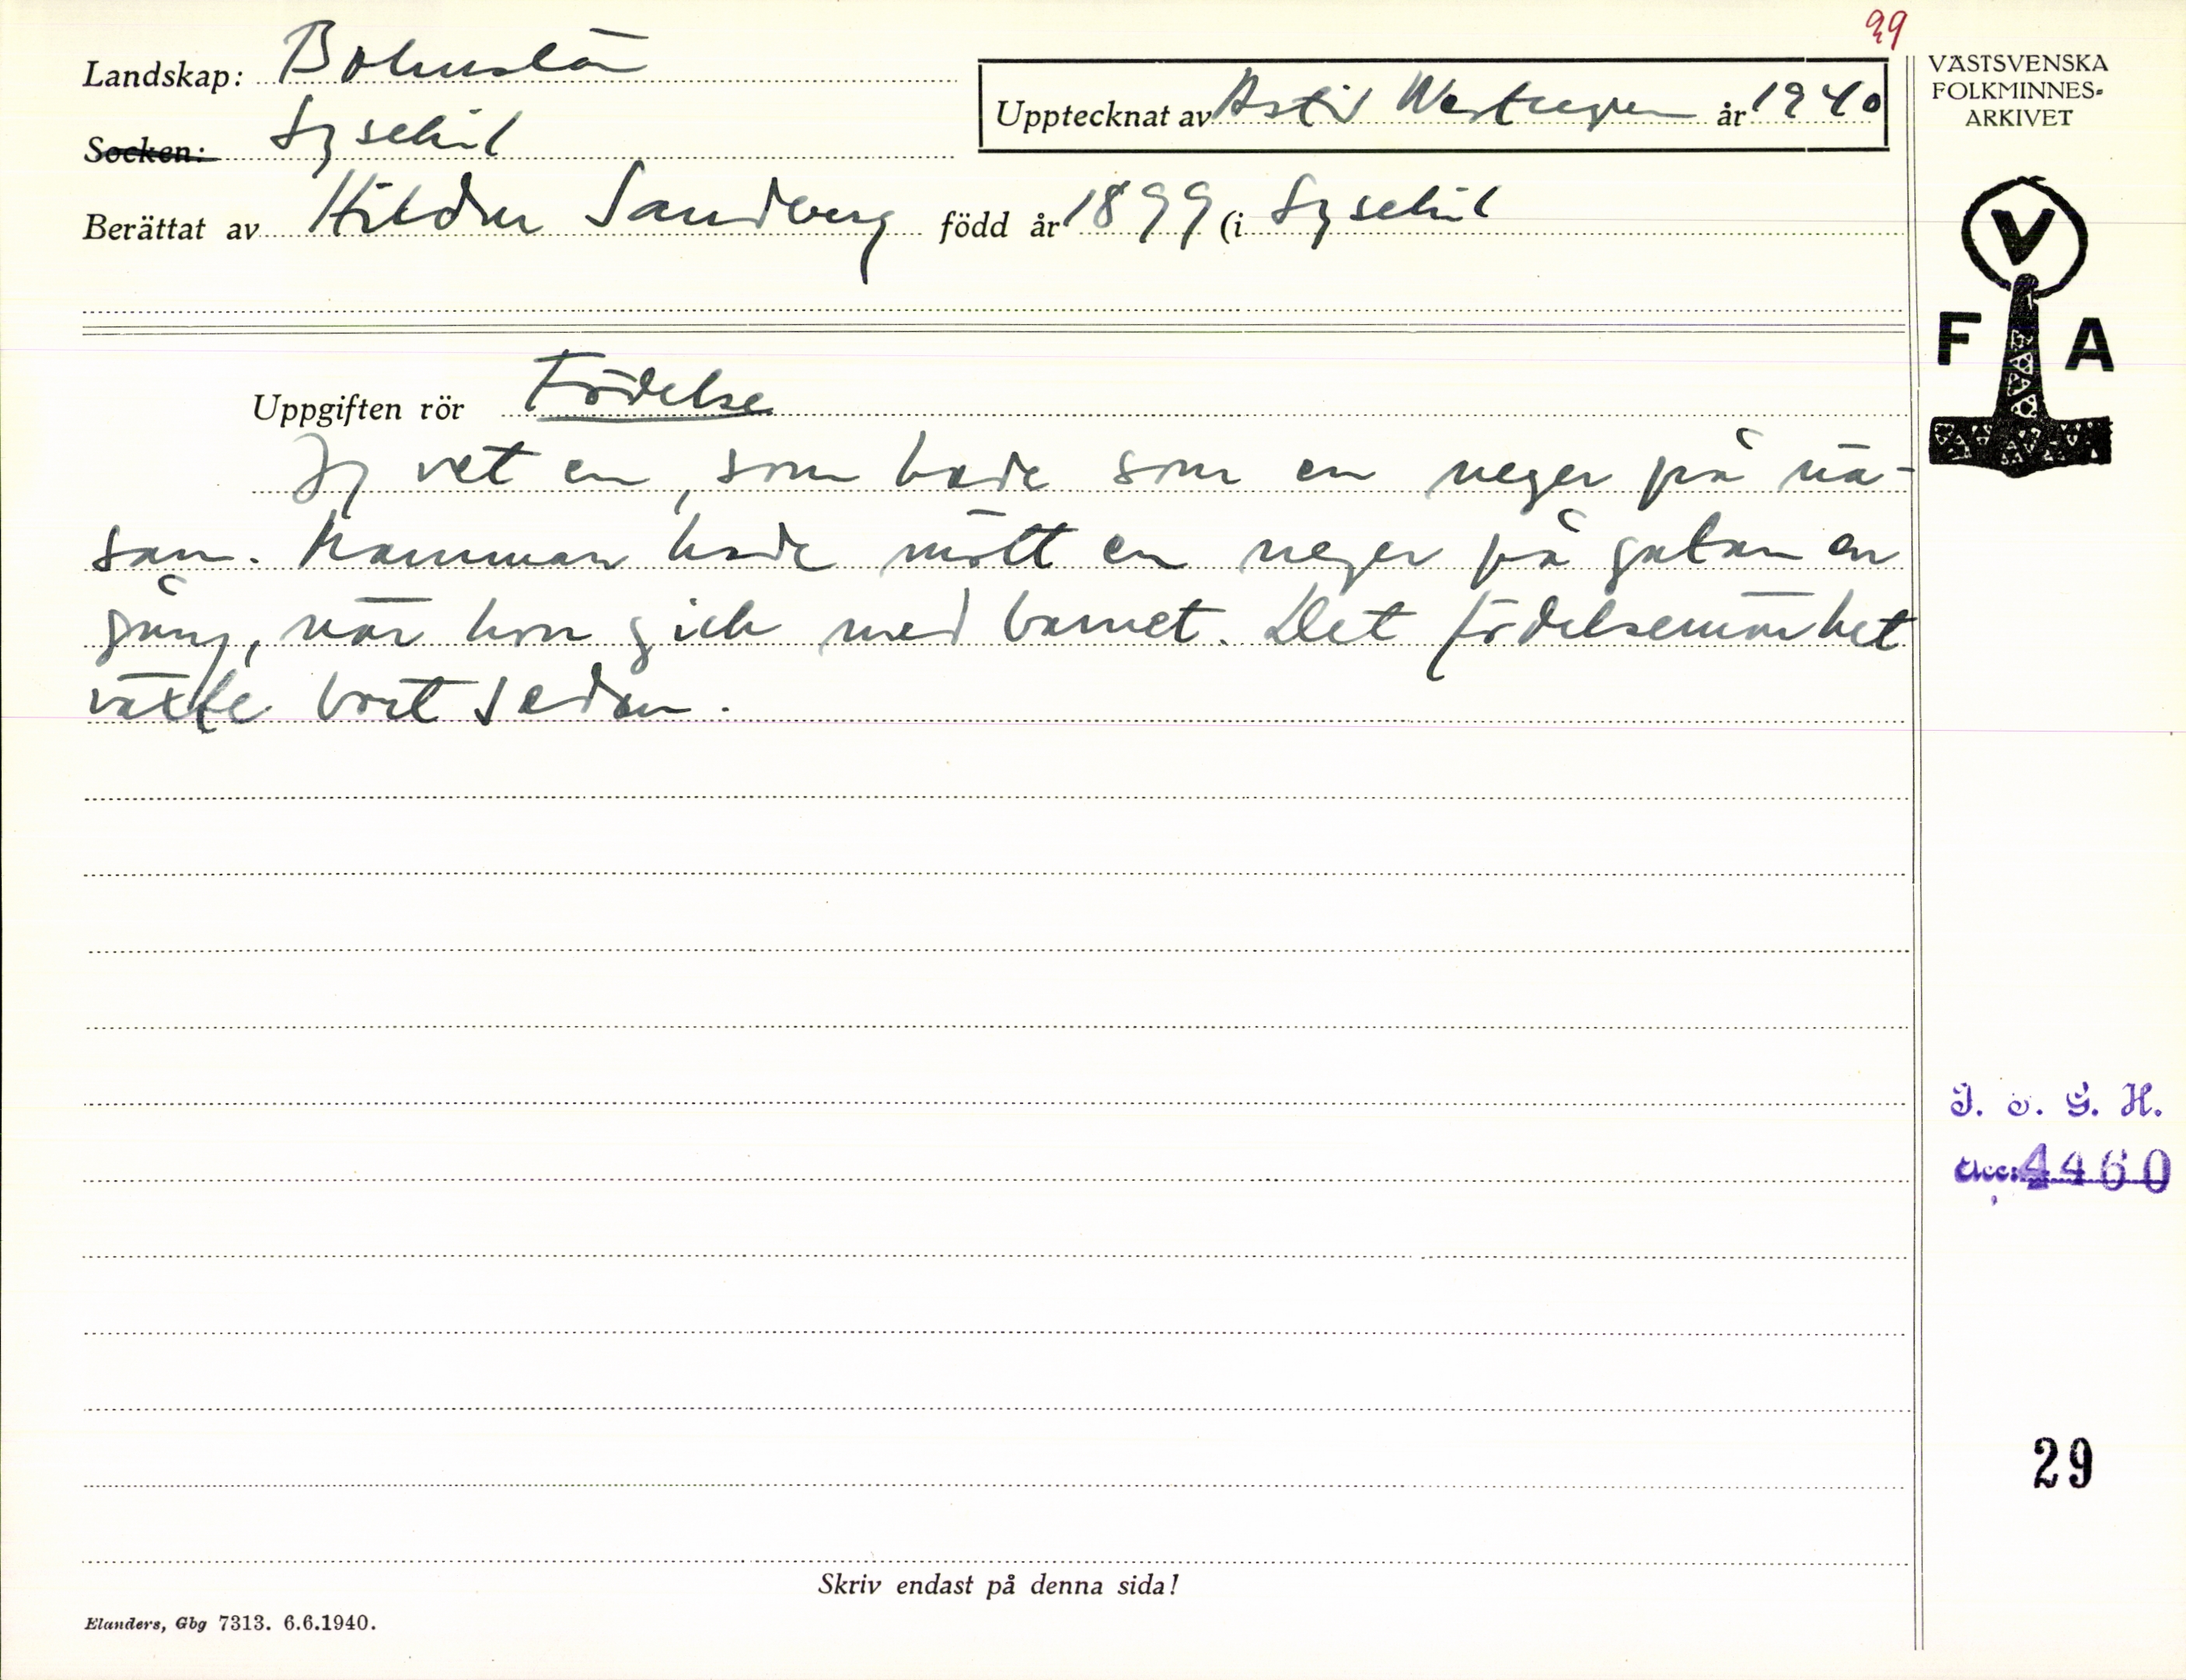 99
Landskap: Bohuslän
Upptecknat av Astrid Westergren år 1940
Socken: Lysekil
Berättat av Hildur Sandberg född år 1899 (i Lysekil
VÄSTSVENSKA
FOLKMINNES-
ARKIVET
V
F A
Uppgiften rör Födelse
Jag vet en, som hade som en neger på nä-
san. Mamman hade mött en neger på gatan en
gång, när hon gick med barnet. Det födelsemärket
växte bort sedan.
I. o. G. H.
Acc: 4460
29
Skriv endast på denna sida!
Elanders, Gbg 7313. 6.6.1940.